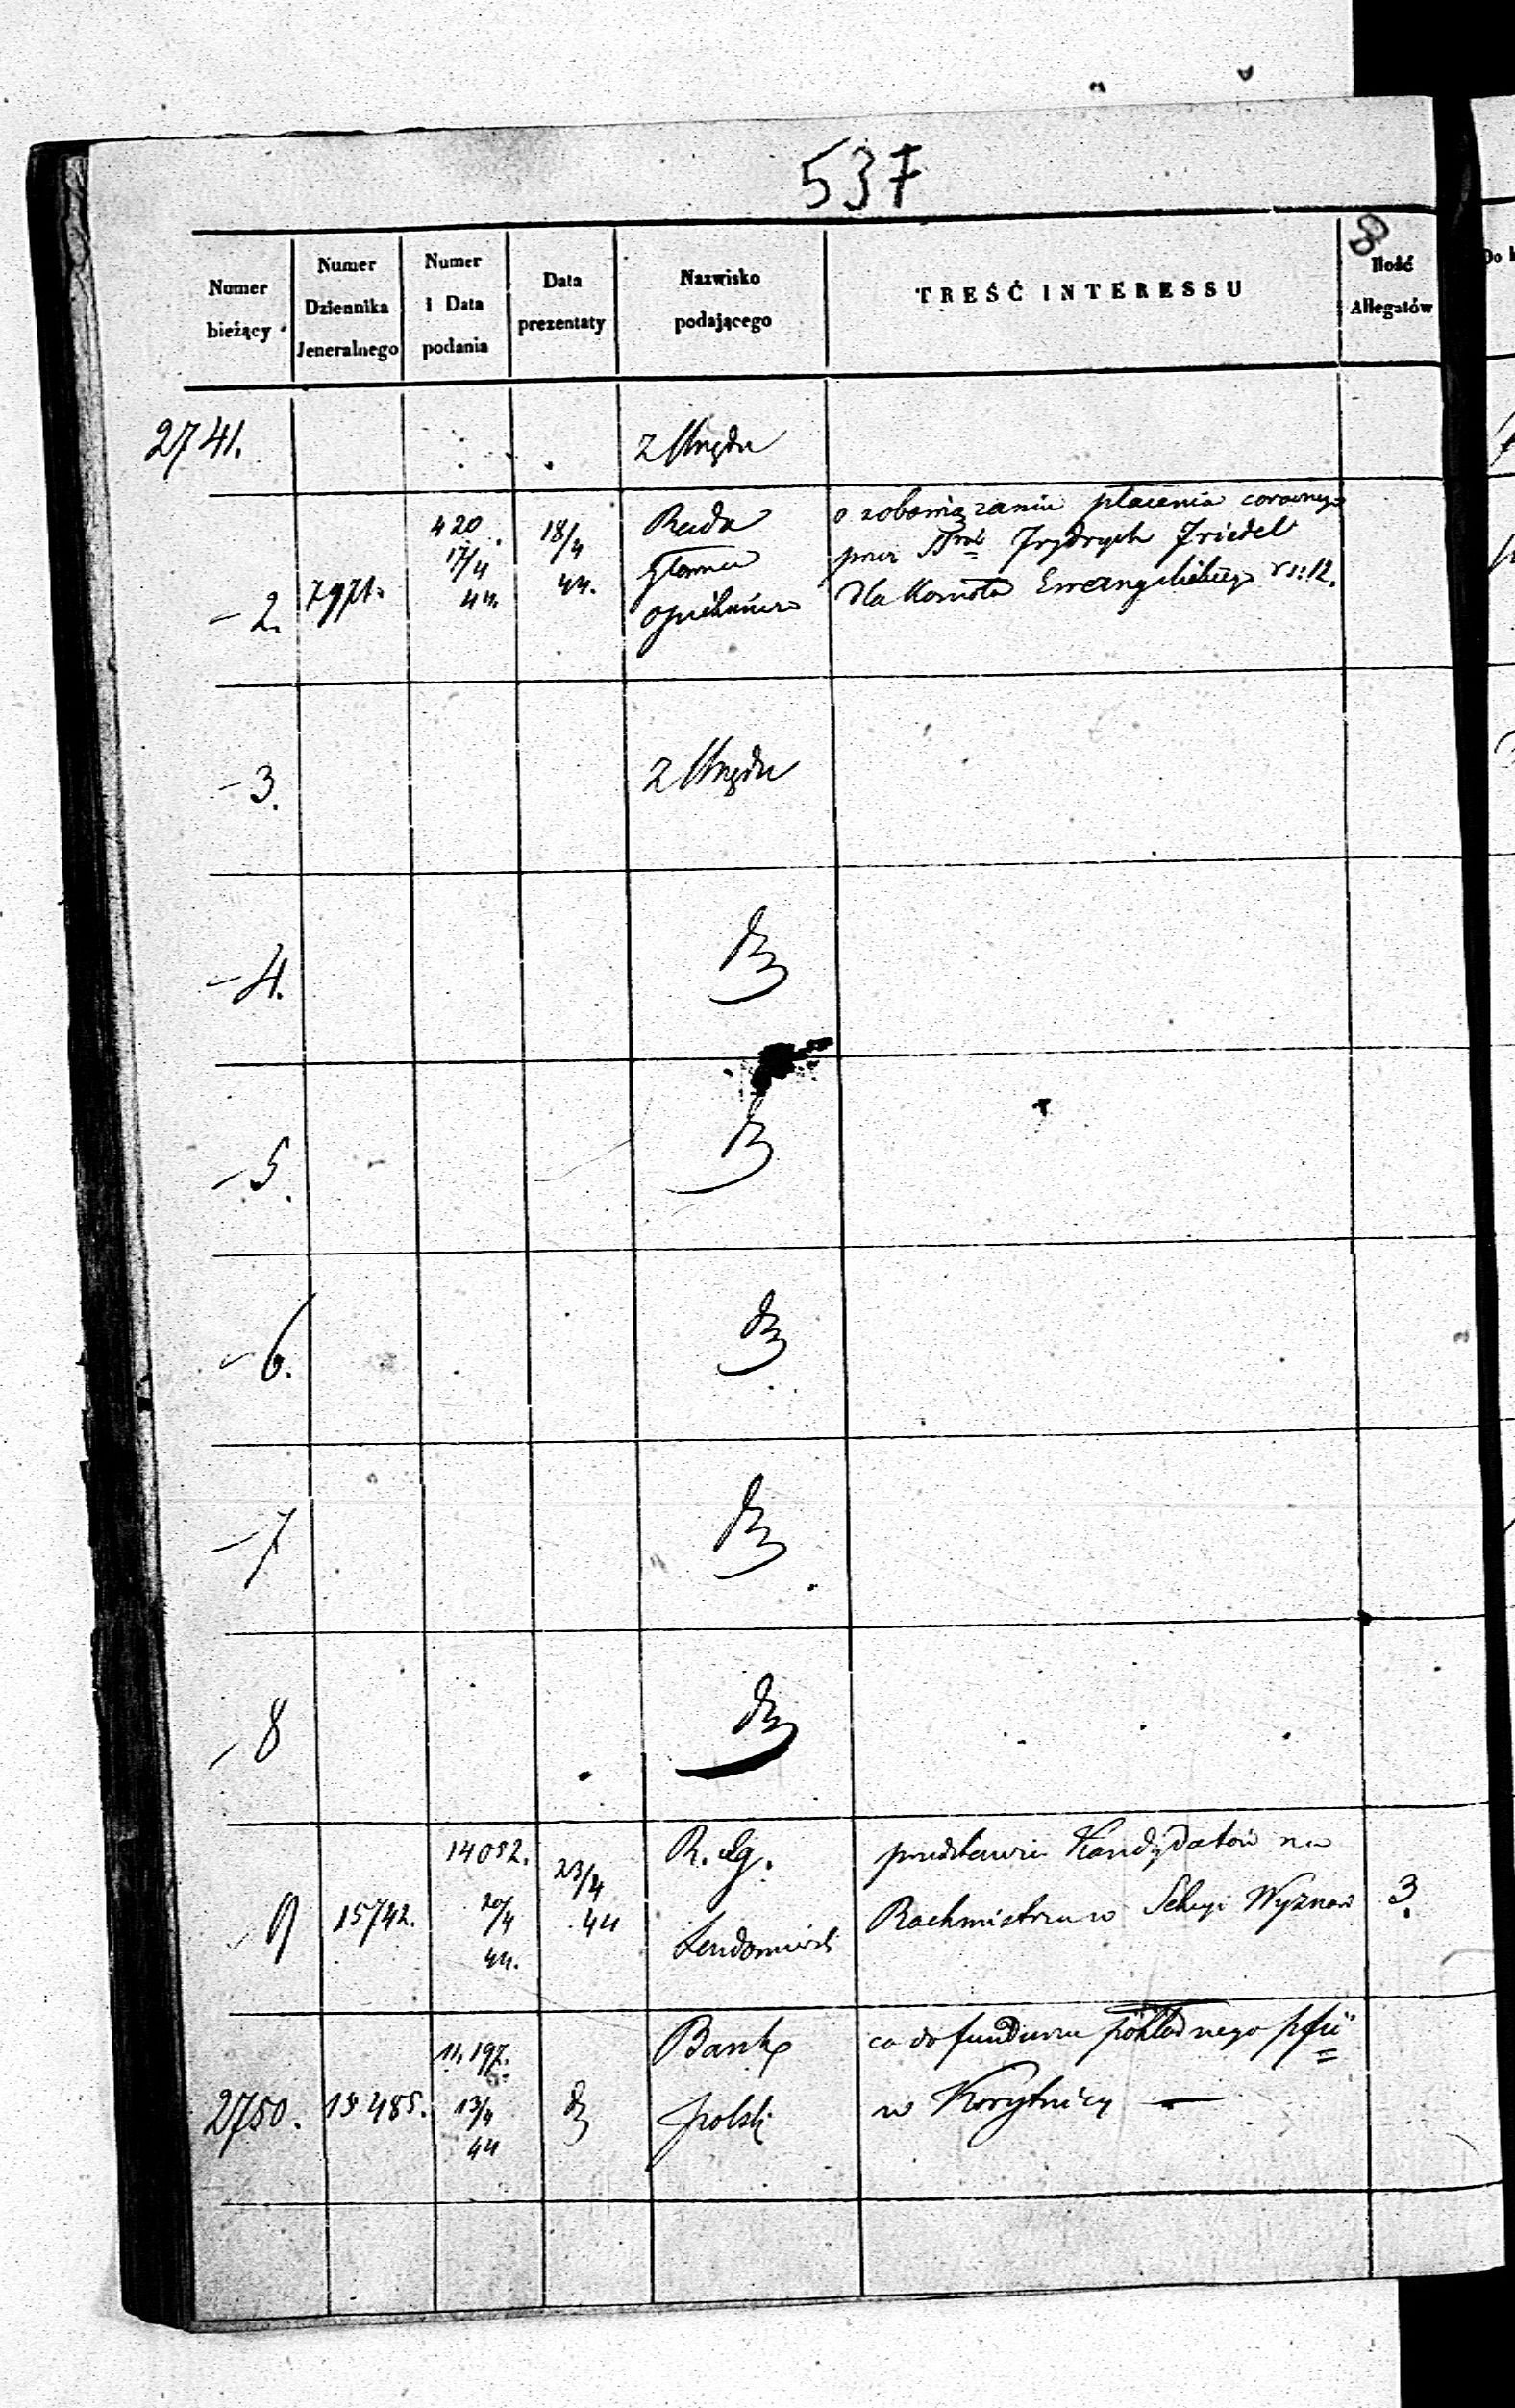 537
8
Numer bieżący
Numer Dziennika Jeneralnego
Numer i Data podania
Data prezentaty
Nazwisko podającego
TREŚĆ INTERESSU
Ilość Allegatów
2741.
z Urzędu
420
17/4
44.
18/4
44.
Rada
Główna
Opiekuńcza
o zobowiązaniu płacenia corocznego
przez Fryderyk Friedel
dla Kościoła Ewangelickiego rs: 12.
– 2.
7971.
– 3.
z Urzędu
– 4.
dz
– 5.
dz
– 6.
dz
– 7
dz
– 8
dz
– 9
15742.
14052.
20/4
44.
23/4
44
R. Lg.
Sandomirski
przedstawia Kandydatów na
Rachmistrza w Sekcyi Wyznań
3.
2750.
15485.
11,197.
13/4
44
dz
Bank
Polski
co do funduszu
w Korytnicy —